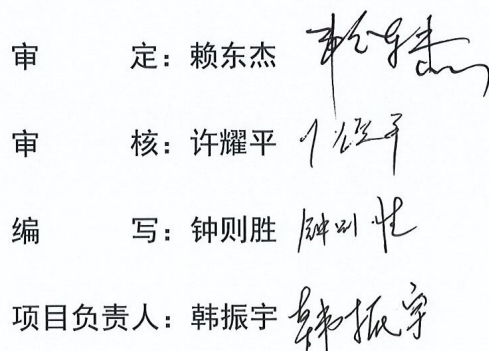 审 定：赖东杰
审 核：许耀平
编 写：钟则胜 钟则胜
项目负责人：韩振宇 韩振宇